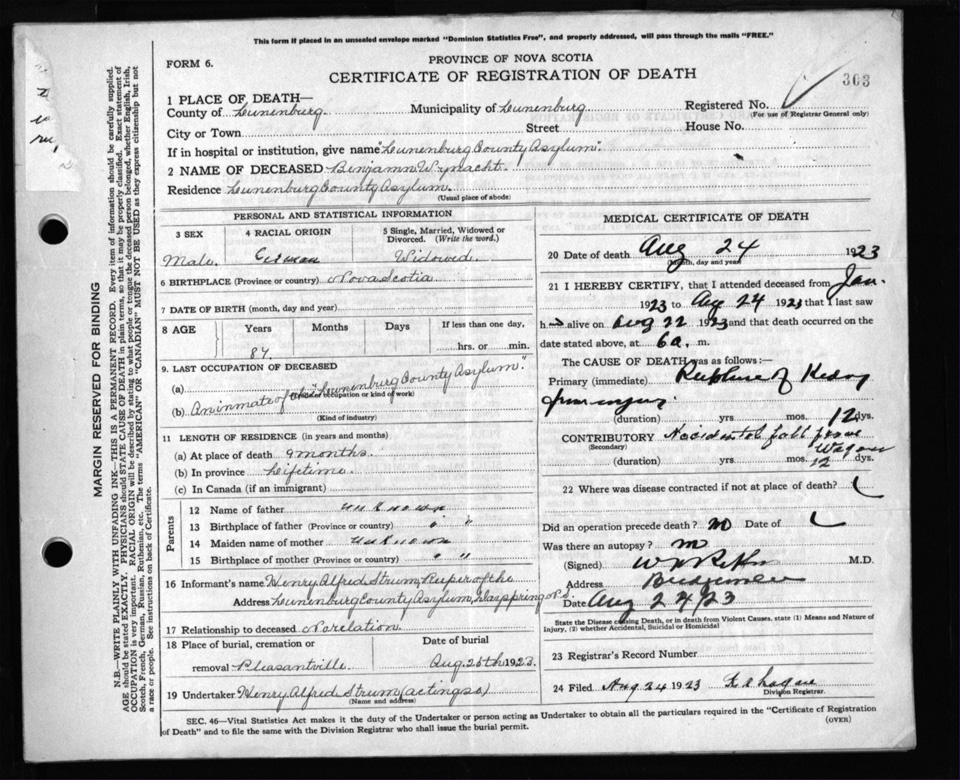 This form if placed in an unsealed envelope marked "Dominion Statistics Free", and properly addressed, will pass through the mails "FREE."
FORM 6.
PROVINCE OF NOVA SCOTIA
CERTIFICATE OF REGISTRATION OF DEATH
303
1 PLACE OF DEATH—
County of Lunenburg. Municipality of Lunenburg Registered No.
(For use of Registrar General only)
City or Town Street House No.
If in hospital or institution, give name "Lunenburg County Asylum".
2 NAME OF DECEASED Binjamn Wynacht.
Residence Lunenburg County Asylum.
(Usual place of abode)
PERSONAL AND STATISTICAL INFORMATION
3 SEX 4 RACIAL ORIGIN 5 Single, Married, Widowed or Divorced. (Write the word.)
Male. German Widowed.
6 BIRTHPLACE (Province or country) Nova Scotia
7 DATE OF BIRTH (month, day and year)
8 AGE Years Months Days If less than one day,
84. hrs. or min.
9. LAST OCCUPATION OF DECEASED
(a)
(Trade or occupation or kind of work)
(b) An inmate of the "Lunenburg County Asylum".
(Kind of industry)
11 LENGTH OF RESIDENCE (in years and months)
(a) At place of death 9 months.
(b) In province Lifetime.
(c) In Canada (if an immigrant)
Parents
12 Name of father unknown
13 Birthplace of father (Province or country) " "
14 Maiden name of mother unknown
15 Birthplace of mother (Province or country) " "
16 Informant's name Henry Alfred Strum, Keeper of the
Address Lunenburg County Asylum,
17 Relationship to deceased No relation.
18 Place of burial, cremation or Date of burial
removal Pleasantville Aug. 25th 1923.
19 Undertaker Henry Alfred Strum (acting so)
(Name and address)
MEDICAL CERTIFICATE OF DEATH
20 Date of death Aug 24 1923
(Month, day and year)
21 I HEREBY CERTIFY, that I attended deceased from Jan.
1923 to Aug 24 1923 that I last saw
h alive on Aug 22 1923 and that death occurred on
date stated above, at 6 a. m.
The CAUSE OF DEATH was as follows:—
Primary (immediate) Rupture of Kidney
from injury.
(duration) yrs. mos. 12 dys.
CONTRIBUTORY Accidental fall from
(Secondary) Wagon
(duration) yrs. mos. 12 dys.
22 Where was disease contracted if not at place of death?
Did an operation precede death? no Date of
Was there an autopsy? no
(Signed) M.D.
Address Bridgewater
Date Aug 24/23
State the Disease causing Death, or in death from Violent Causes, state (1) Means and Nature of Injury, (2) whether Accidental, Suicidal or Homicidal
23 Registrar's Record Number
24 Filed Aug 24 1923
Division Registrar.
SEC. 46—Vital Statistics Act makes it the duty of the Undertaker or person acting as Undertaker to obtain all the particulars required in the "Certificate of Registration
of Death" and to file the same with the Division Registrar who shall issue the burial permit.
(OVER)
MARGIN RESERVED FOR BINDING
N.B.—WRITE PLAINLY WITH UNFADING INK—THIS IS A PERMANENT RECORD. Every item of information should be carefully supplied.
AGE should be stated EXACTLY. PHYSICIANS should STATE CAUSE OF DEATH in plain terms, so that it may be properly classified. Exact statement of
OCCUPATION is very important. RACIAL ORIGIN will be described by stating to what people or tongue the deceased person belonged, whether English, Irish,
Scotch, French, German, Russian, Ruthenian, etc. The terms "AMERICAN" OR "CANADIAN" MUST NOT BE USED as they express citizenship but not
a race or people. See instructions on back of Certificate.